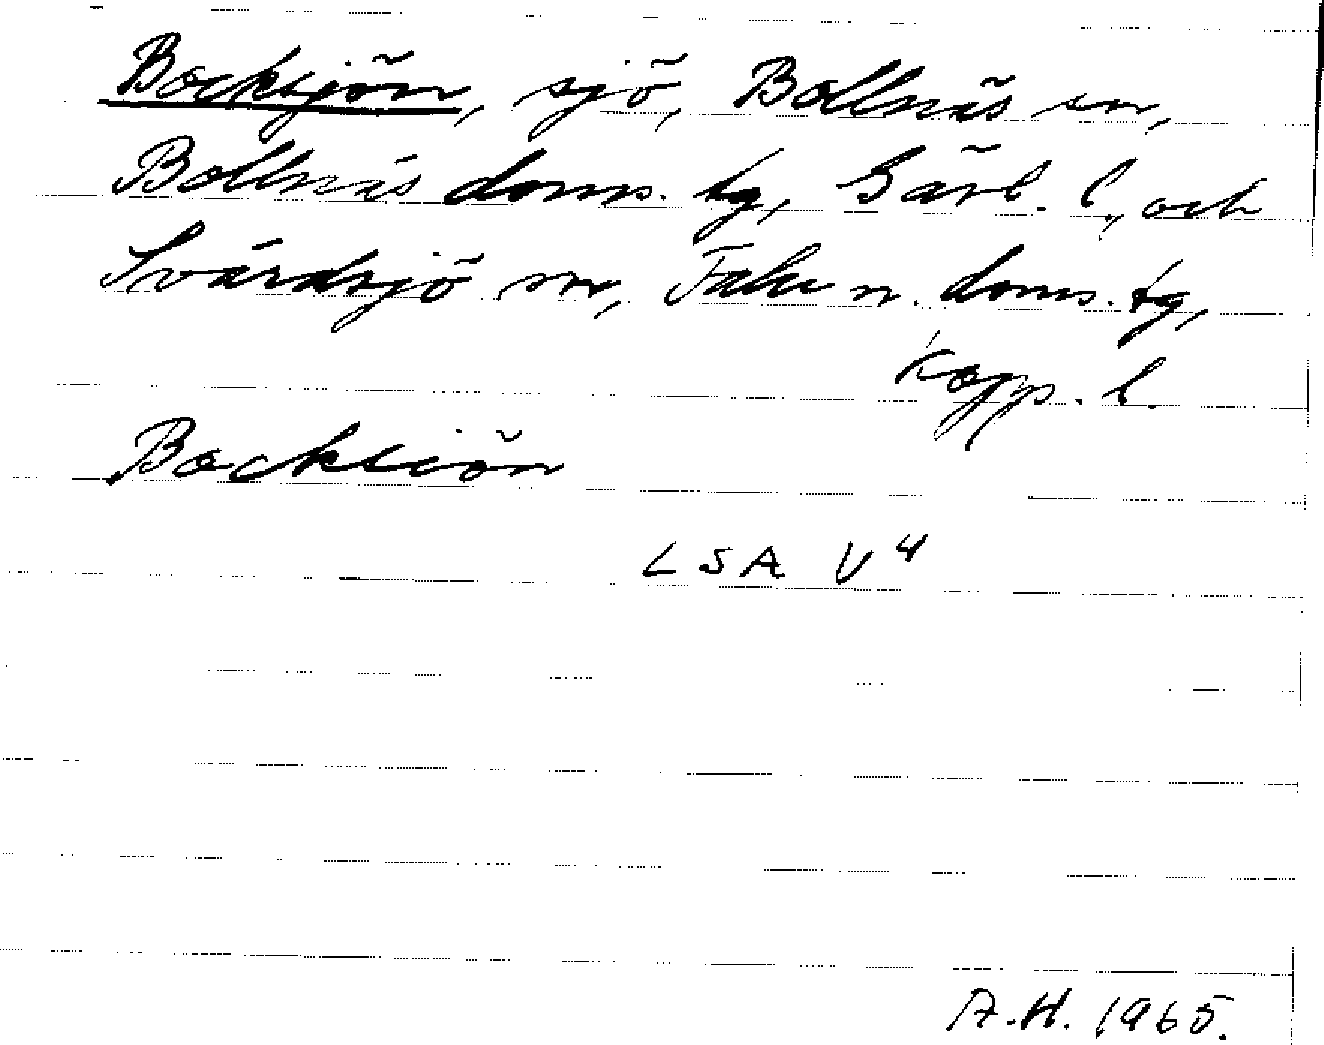 Bocksjön, sjö, Bollnäs sn,
Bollnäs doms. tg, Gävl. l., och
Svärdsjö sn, Falu n. doms. tg,
Kopp. l.
Bocksiön
LSA V4
A.H. 1965.